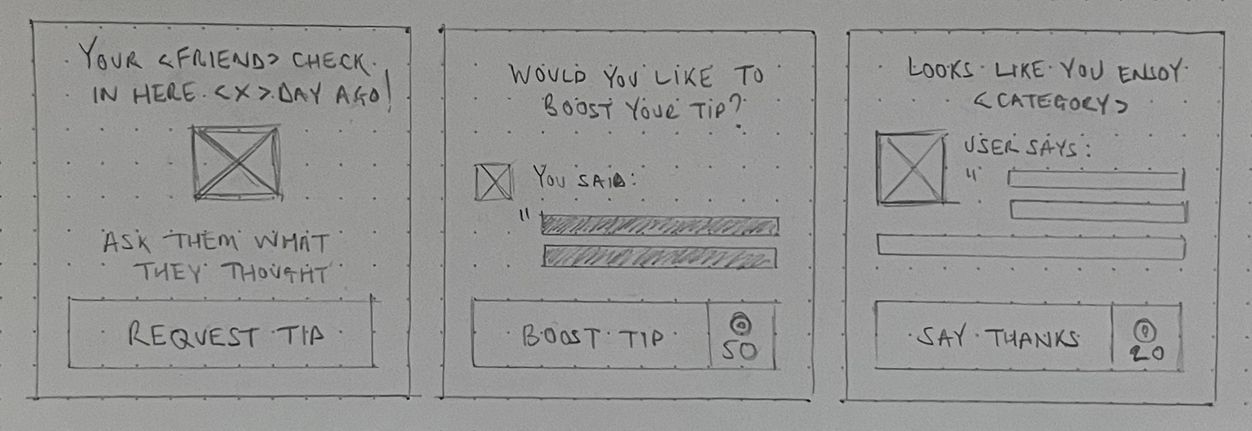 YOUR <FRIEND> CHECK
IN HERE <X> DAY AGO!
ASK THEM WHAT
THEY THOUGHT
REQUEST TIP
WOULD YOU LIKE TO
BOOST YOUR TIP?
YOU SAID:
"
BOOST TIP
50
LOOKS LIKE YOU ENJOY
<CATEGORY>
USER SAYS:
"
SAY THANKS
20